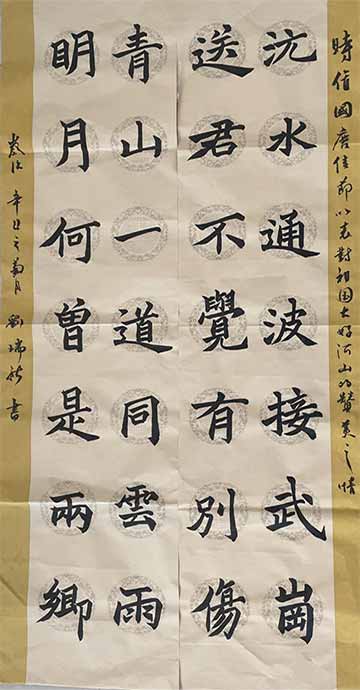 時值國慶佳節以表對祖国大好河山的贊美之情
沅水通波接武崗
送君不覺有別傷
青山一道同雲雨
明月何曽是兩鄉
歲次辛丑之菊月劉瑞書